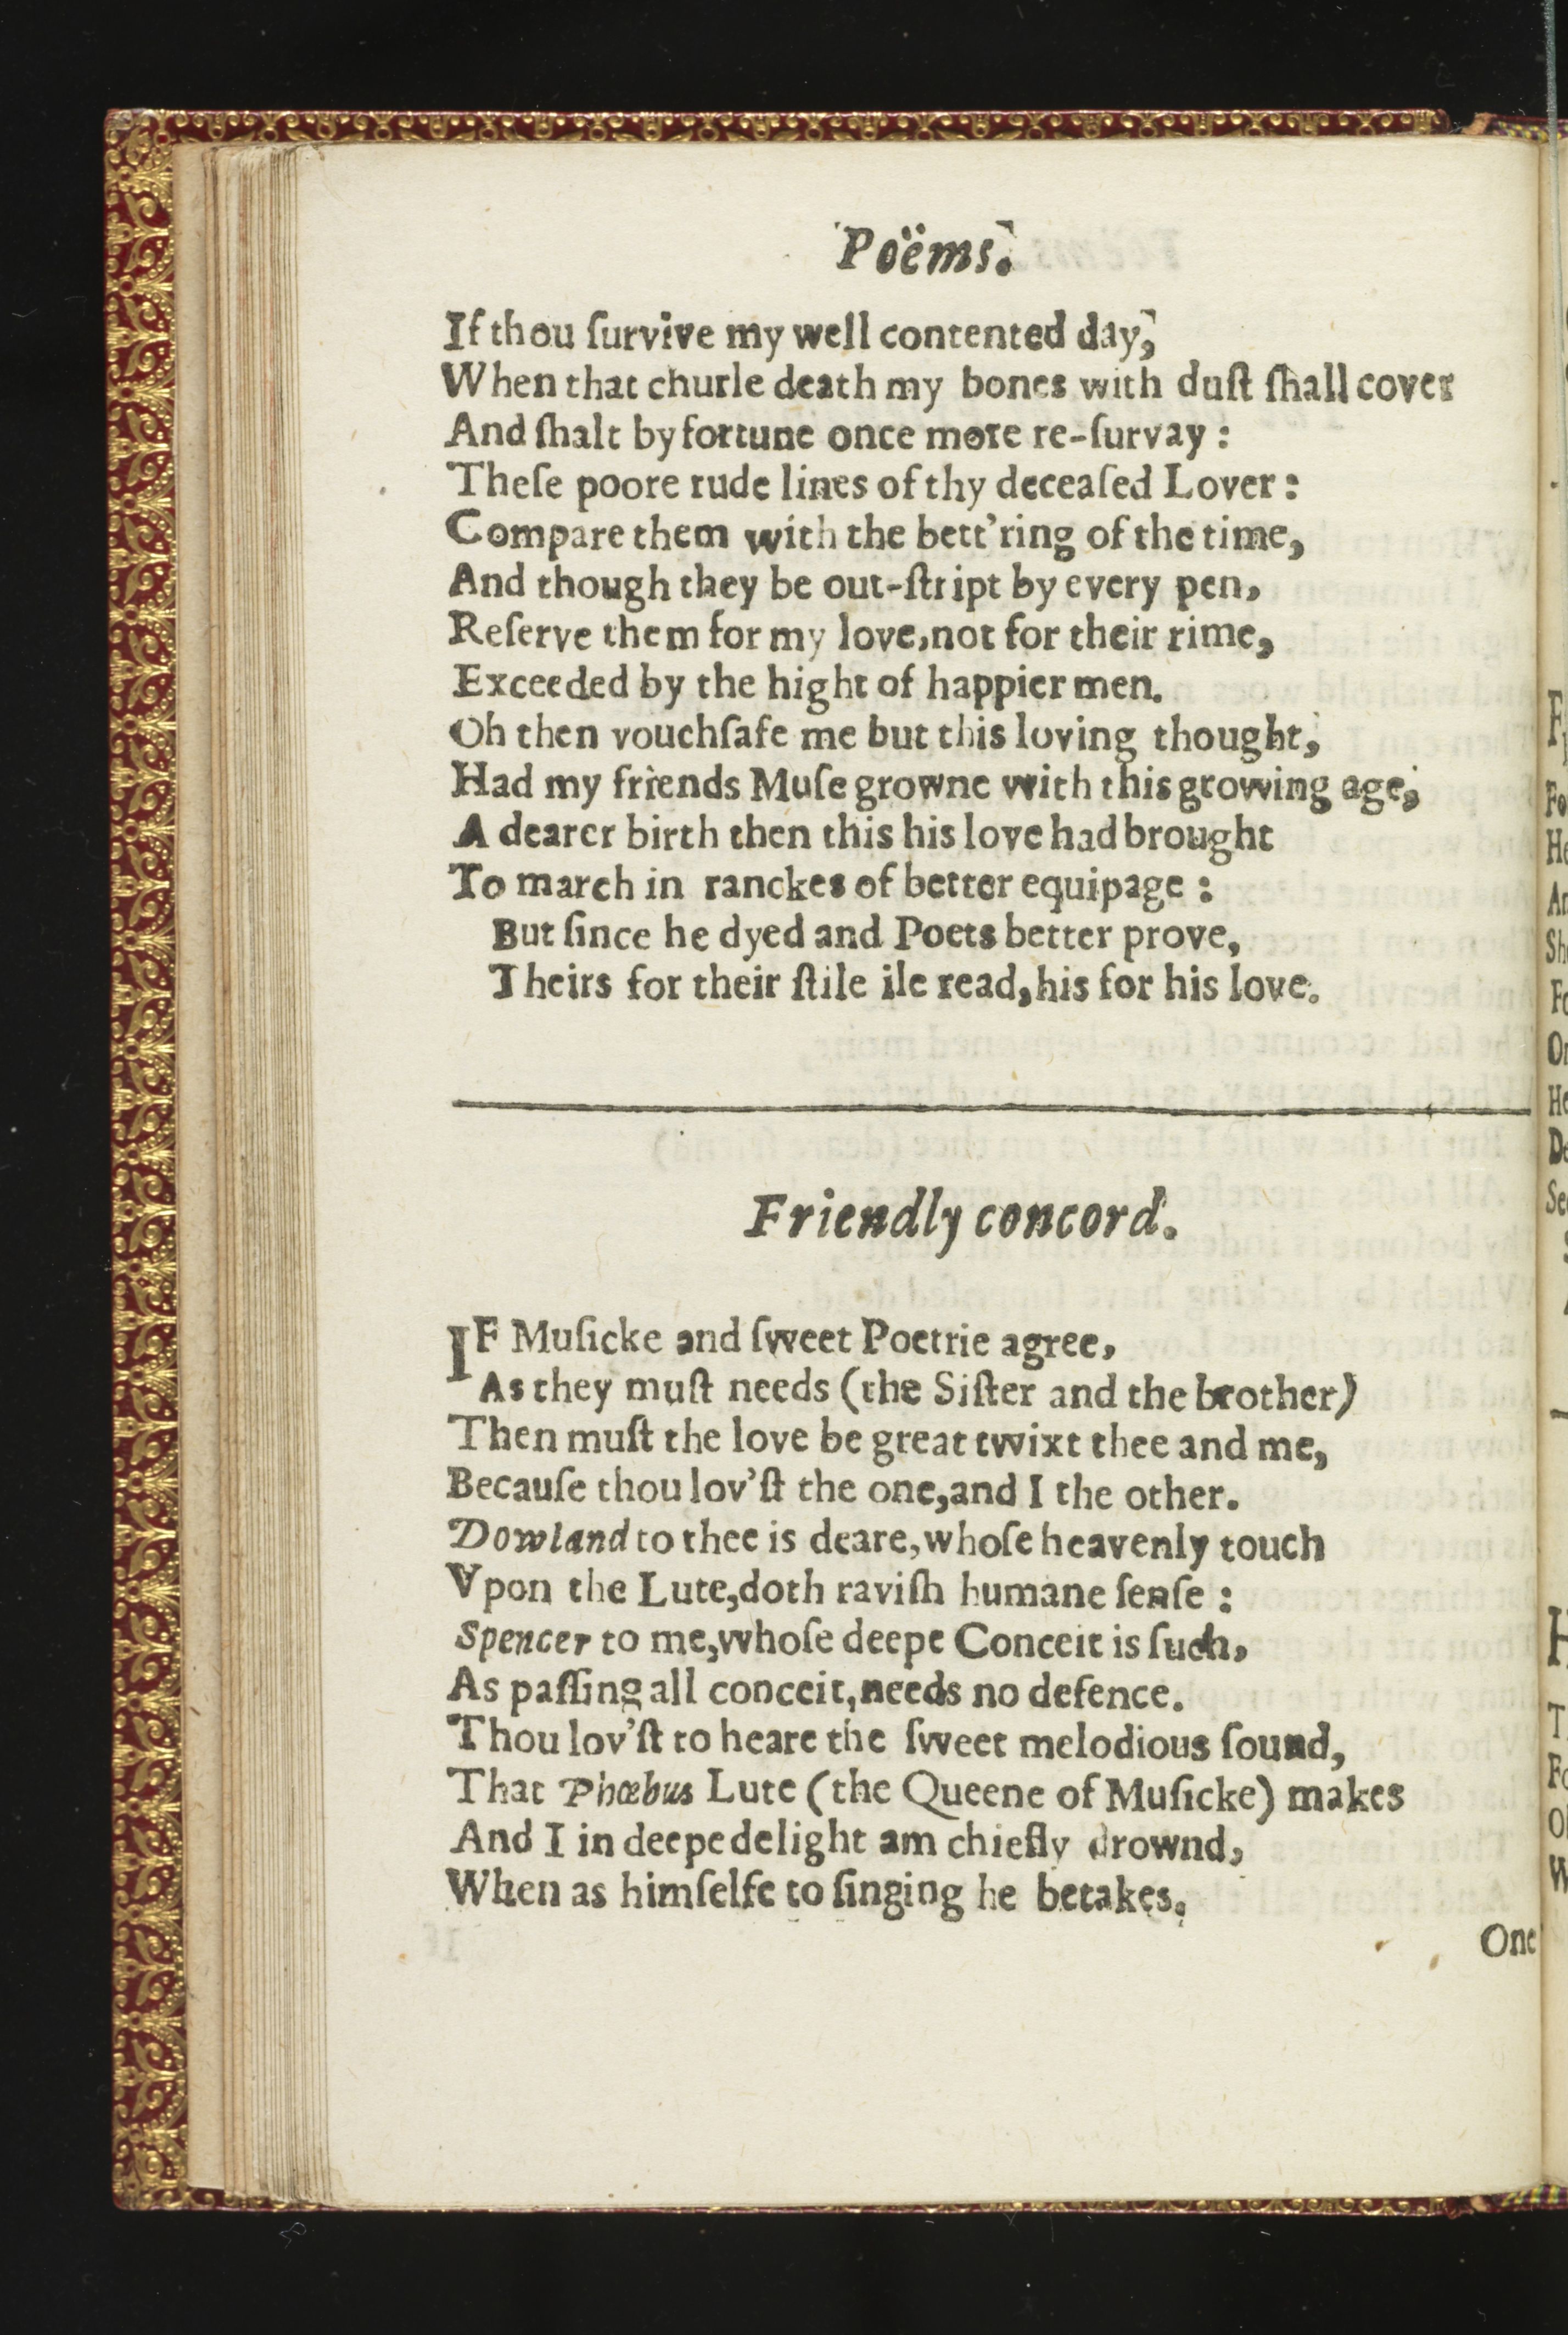 Poëms.
If thou ſurvive my well contented day,
When that churle death my bones with duſt ſhall cover
And ſhalt by fortune once more re-ſurvay :
Theſe poore rude lines of thy deceaſed Lover :
Compare them with the bett'ring of the time,
And though they be out-ſtript by every pen,
Reſerve them for my love,not for their rime,
Exceeded by the hight of happier men.
Oh then vouchſafe me but this loving thought,
Had my friends Muſe growne with this growing age,
A dearer birth then this his love had brought
To march in ranckes of better equipage :
But ſince he dyed and Poets better prove,
Theirs for their ſtile ile read,his for his love.
Friendly concord.
IF Muſicke and ſweet Poetrie agree,
As they muſt needs (the Siſter and the brother)
Then muſt the love be great twixt thee and me,
Becauſe thou lov'ſt the one,and I the other.
Dowland to thee is deare,whoſe heavenly touch
Vpon the Lute,doth raviſh humane ſenſe :
Spencer to me,whoſe deepe Conceit is ſuch,
As paſſing all conceit,needs no defence.
Thou lov'ſt to heare the ſweet melodious ſound,
That Phœbus Lute (the Queene of Muſicke) makes
And I in deepe delight am chiefly drownd,
When as himſelfe to ſinging he betakes.
One